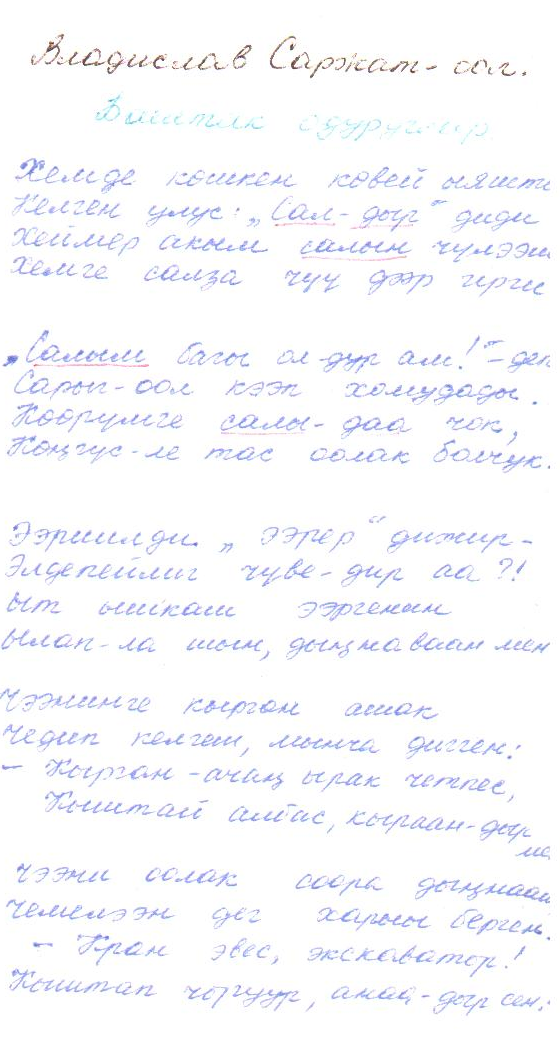 Владислав Саржат-оол.
Хемде кошкен ковей ыяшты
Келген улус: „Сал-дыр" диди
Хеймер акым салын чулээш
Хемге салза чуу дээр ирги
„Салым багы ол-дур ам!"-деп
Сарыг-оол кээп хомудады.
Коорумге салы-даа чок,
Конгус-ле тас оолак болчук.
Ээргилди. „ээрер" дижир-
Элдепейлиг чуве-дир аа?!
Ыт ышкаш ээргенин
Ылап-ла шын, дыңнаваан мен
Чээнинге кырган ашак
Чедип келгеш, мынча дигген:
- Кырган-ачаң ырак четпес,
Кыштай албас, кыраан-дыр
мен
Чээни оолак соора дыңнааш
Чемелээн дег харыы берген.
- Кран эвес, экскаватор!
Кыштап чоруур, анаа-дыр сен!